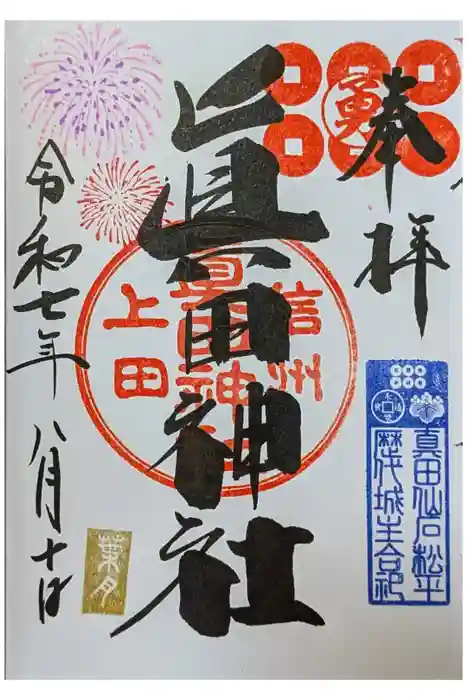 奉拝
勇
眞田神社
信州
眞田神社
上田
真田仙石松平
歴代城主合祀
令和七年八月十日
葉月